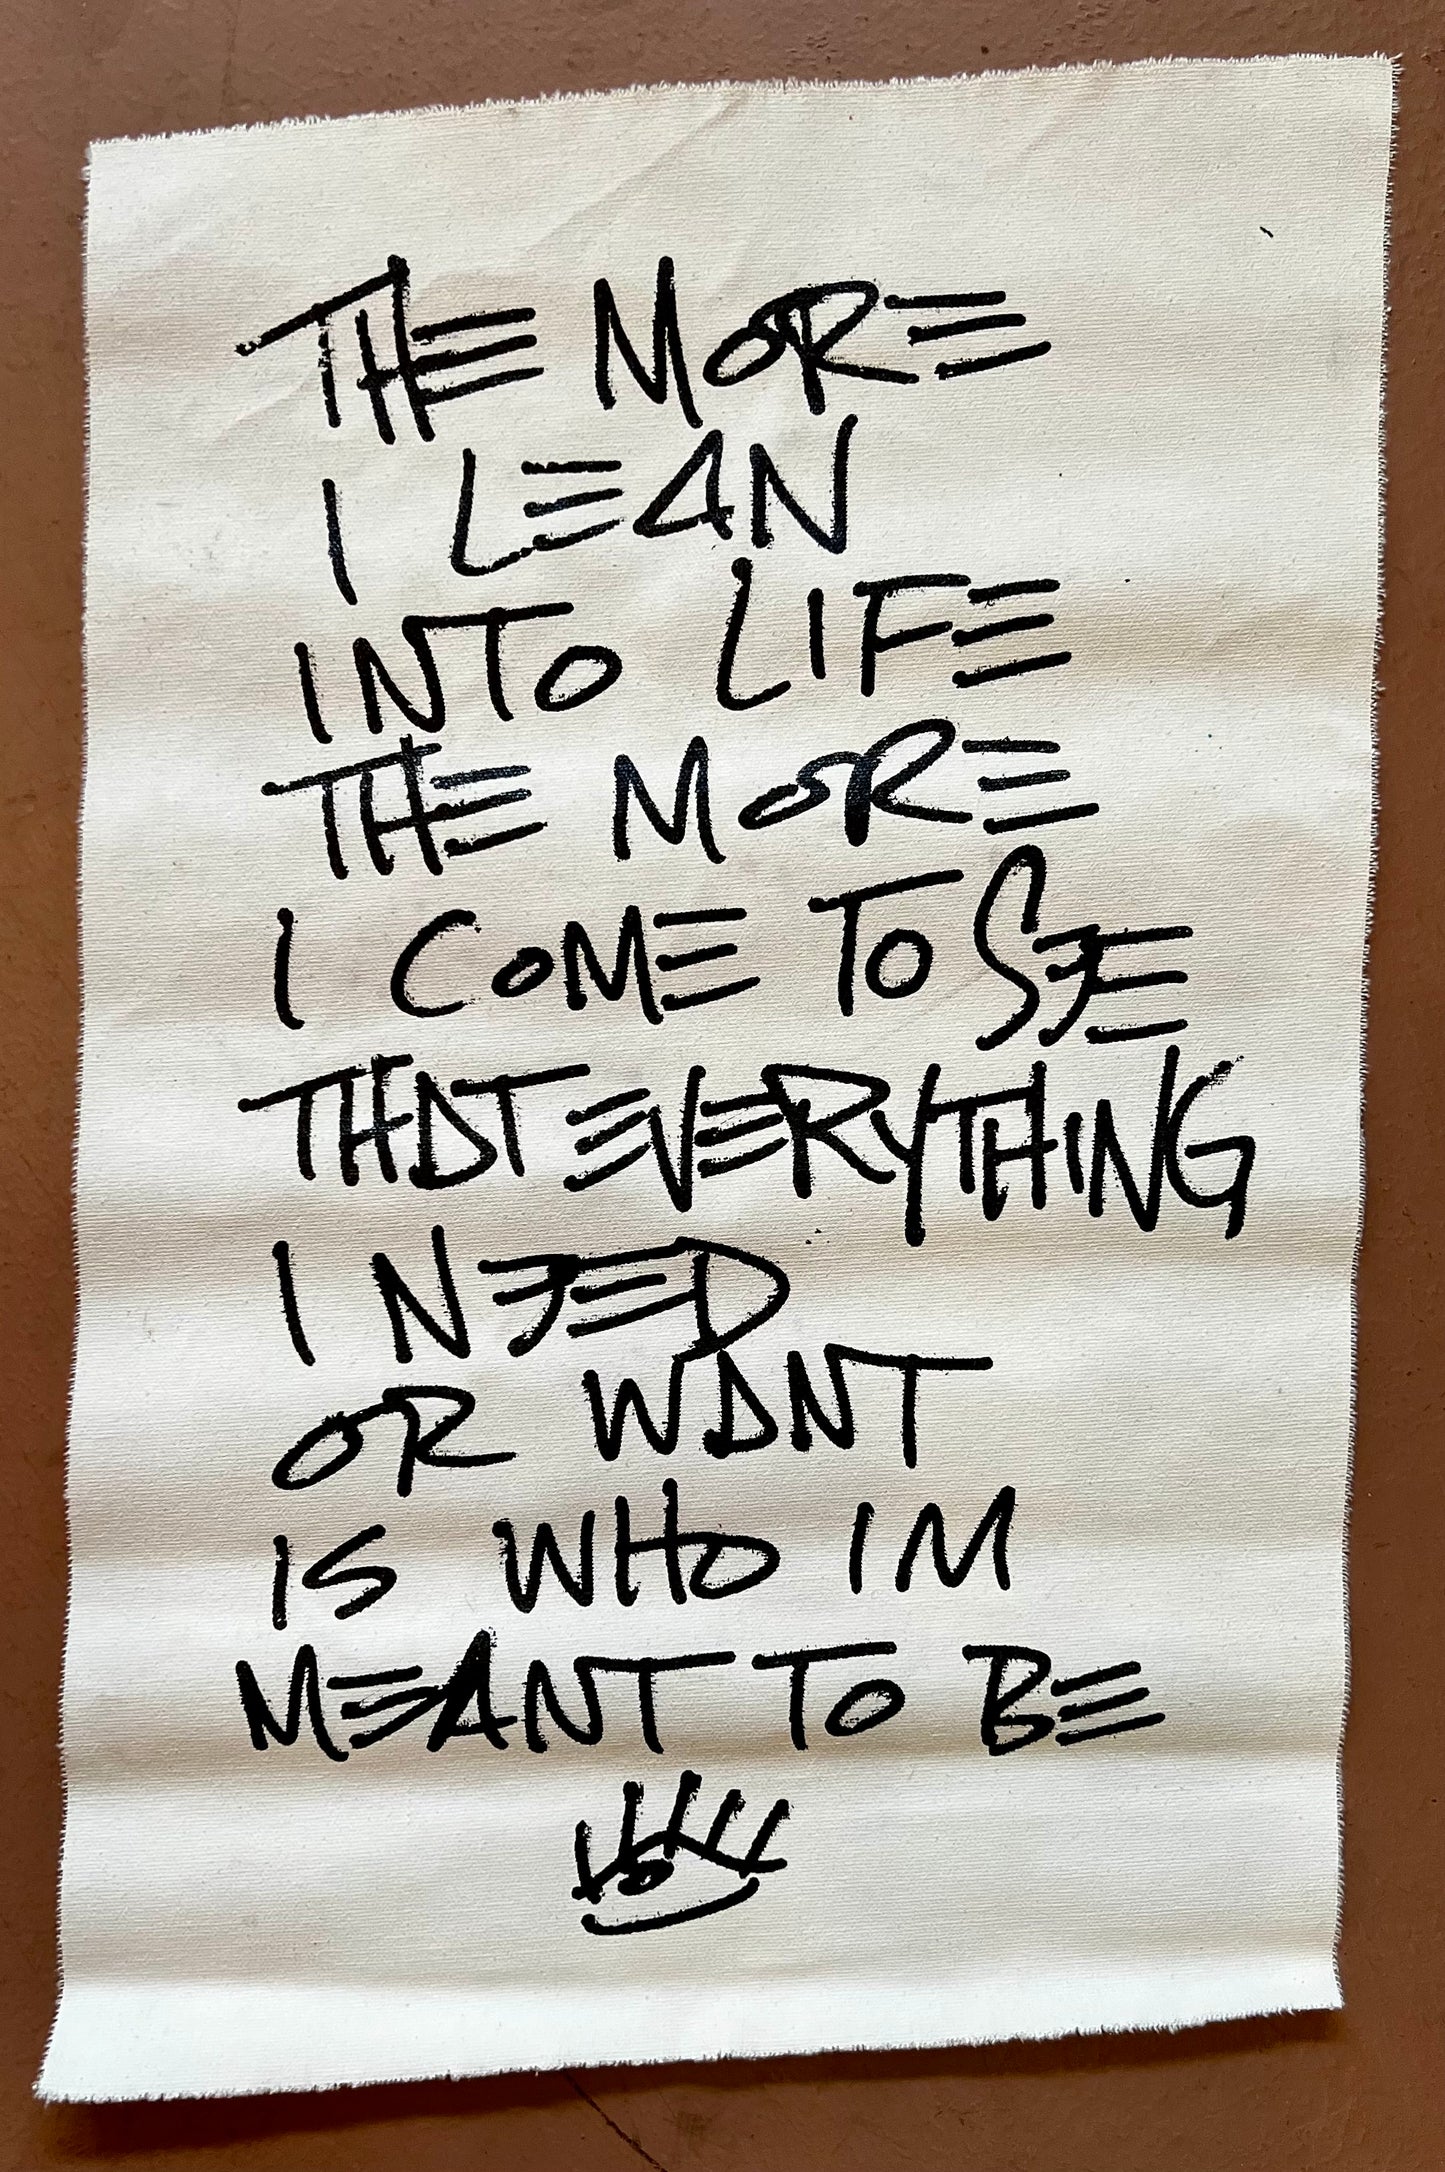 THE MORE
I LEAN
INTO LIFE
THE MORE
I COME TO SEE
THAT EVERYTHING
I NEED
OR WANT
IS WHO IM
MEANT TO BE